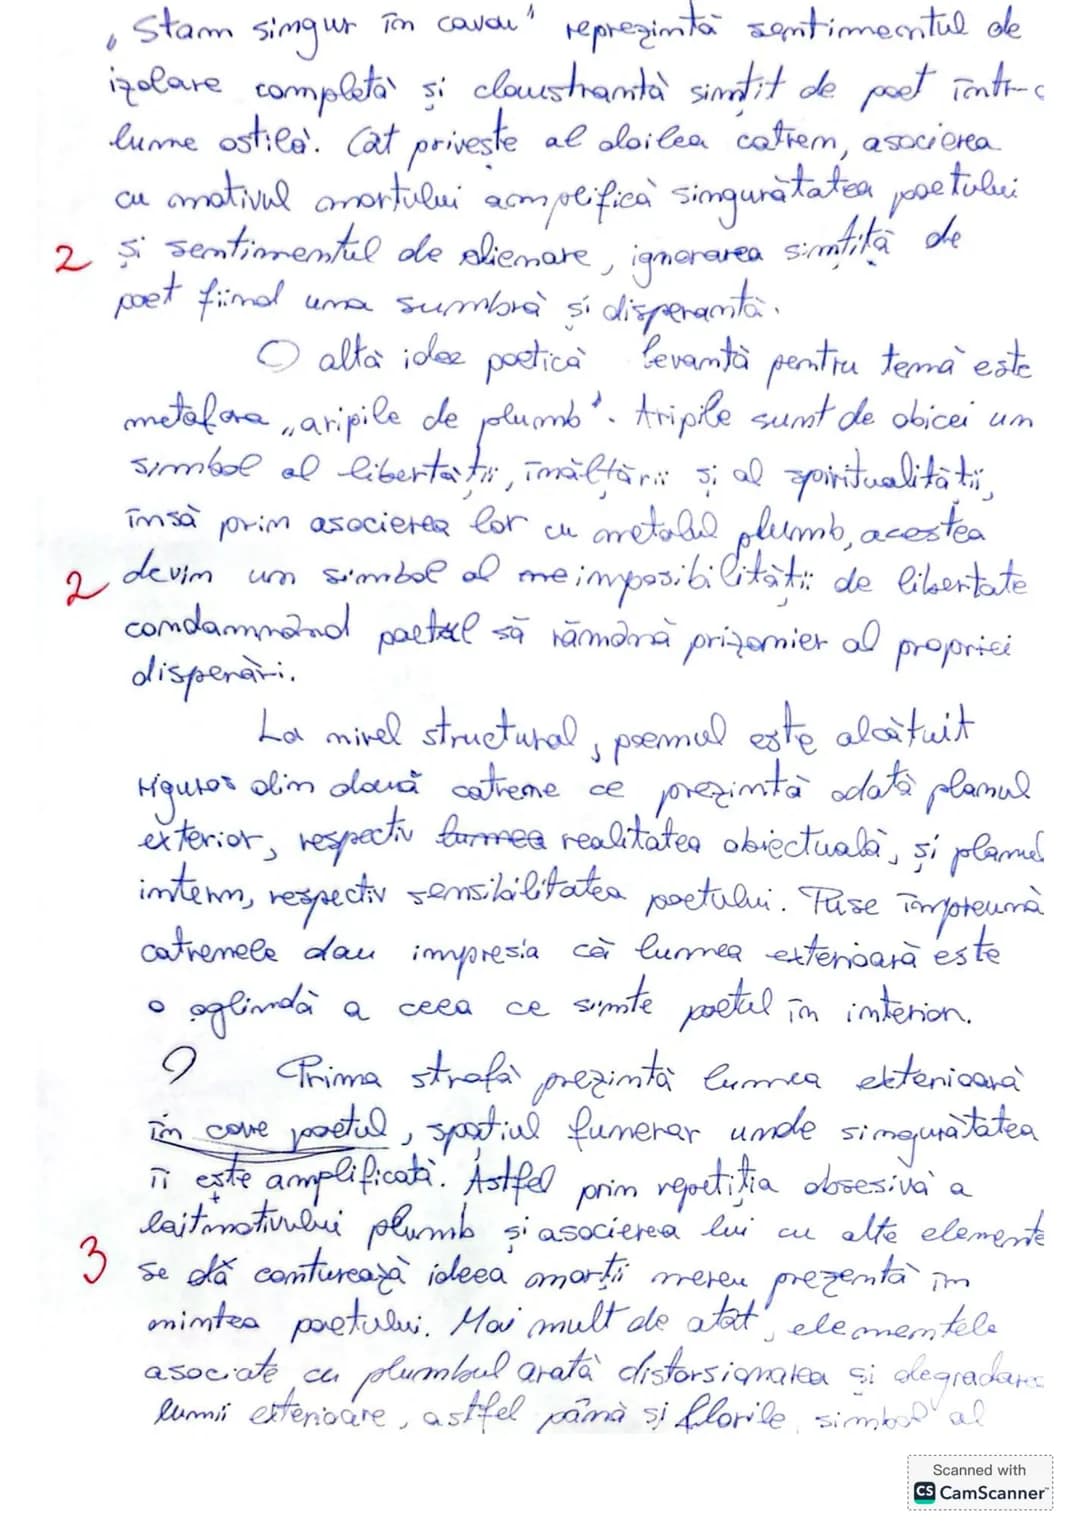 „Stam singur în cavou" reprezintă sentimentul de
izolare completă și claustrantă simțit de poet într-o
lume ostilă. Cât privește al doilea catren, asocierea
cu motivul mortului amplifică singurătatea poetului
2 și sentimentul de alienare, ignorarea simțită de
poet fiind una sumbră și disperantă.
O altă idee poetică levantă pentru temă este
metafora „aripile de plumb". Aripile sunt de obicei un
simbol al libertății, înălțării și al spiritualității,
însă prin asocierea lor cu metalul plumb, acestea
2 devin un simbol al neimposibilității de libertate
condamnând poetul să rămână prizonier al propriei
disperări.
La nivel structural, poemul este alcătuit
riguros din două catrene ce prezintă odată planul
exterior, respectiv lumea realitatea obiectuală, și planul
intern, respectiv sensibilitatea poetului. Puse împreună
catrenele dau impresia că lumea exterioară este
o oglindă a ceea ce simte poetul în interior.
? Prima strofă prezintă lumea exterioară
în care poetul, spațiul funerar unde singurătatea
îi este amplificată. Astfel prin repetiția obsesivă a
laitmotivului plumb și asocierea lui cu alte elemente
3 se dă conturează ideea morții mereu prezentă în
mintea poetului. Mai mult de atât, elementele
asociate cu plumbul arată distorsionarea și degradarea
lumii exterioare, astfel până și florile, simbol al
Scanned with
CS CamScanner